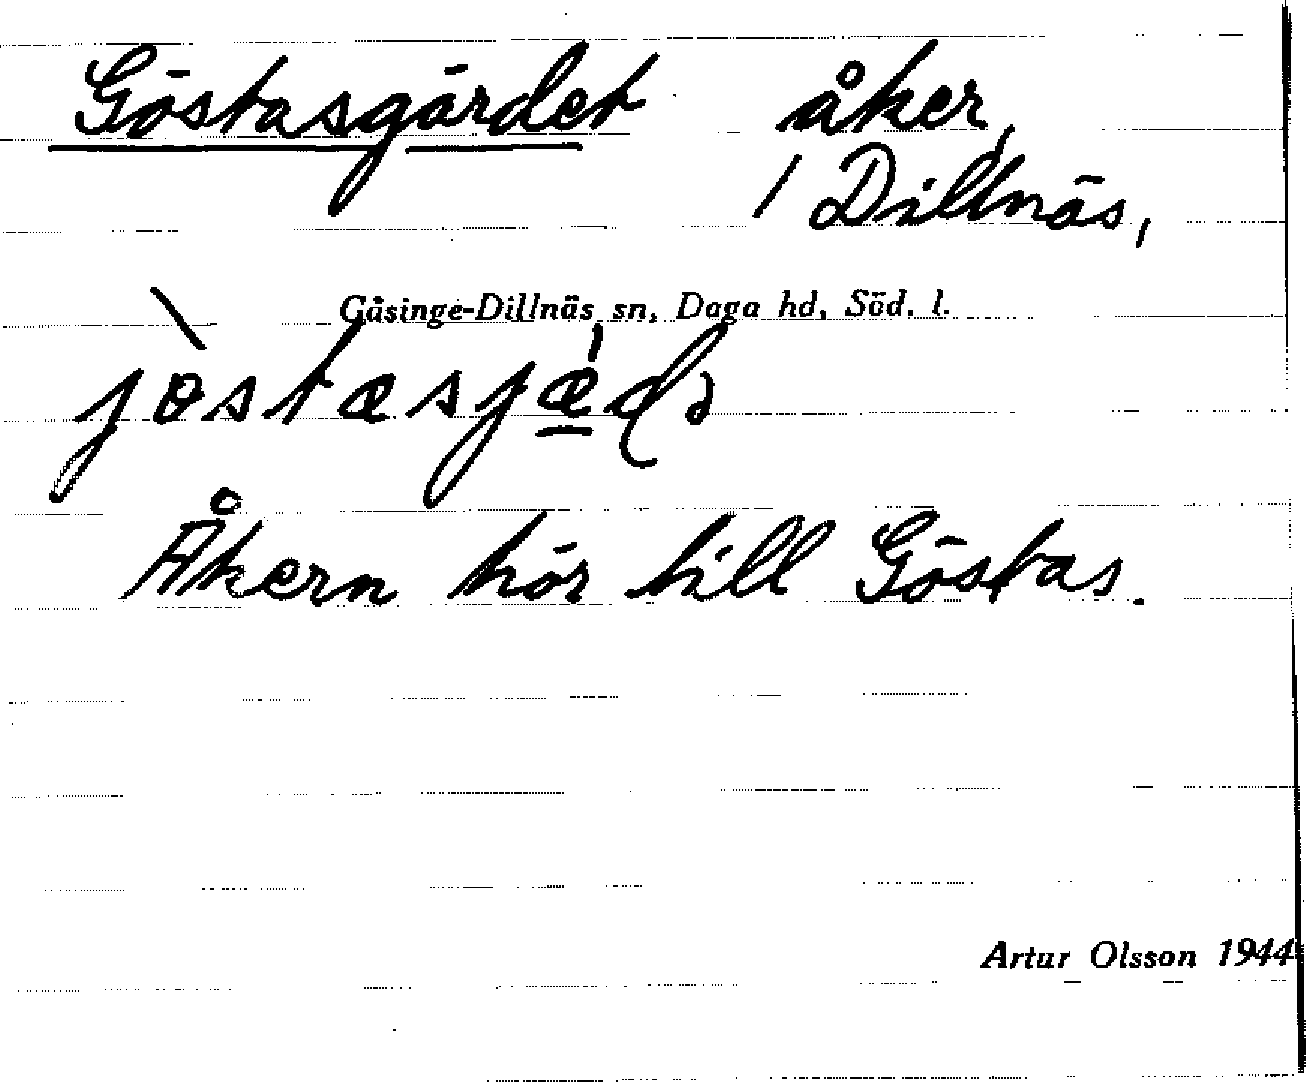 Göstasgärdet åker,
/ Dillnäs,
Gåsinge-Dillnäs sn, Daga hd, Söd. l.
Åkern hör till Göstas.
Artur Olsson 1944